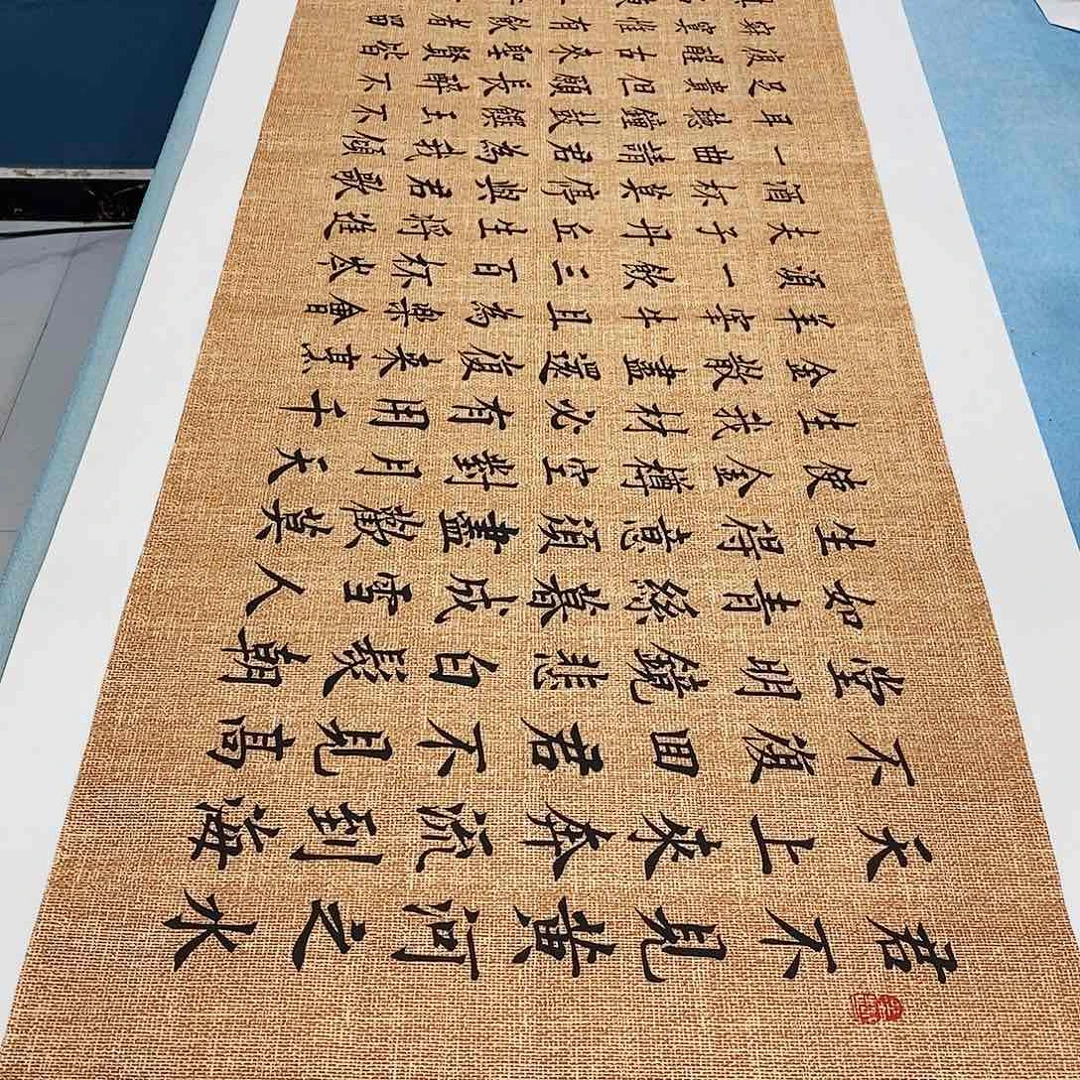 君不見黄河之水
天上來奔流到海
不復回君不見高
堂明鏡悲白髮朝
如青絲暮成雪人
生得意須盡歡莫
使金樽空對月天
生我材必有用千
金散盡還復來烹
羊宰牛且為樂會
須一飲三百杯岑
夫子丹丘生將進
酒杯莫停與君歌
一曲請君為我傾
耳聽鐘鼓饌玉不
足貴但願長醉不
復醒古來聖賢皆
寂寞惟有飲者留